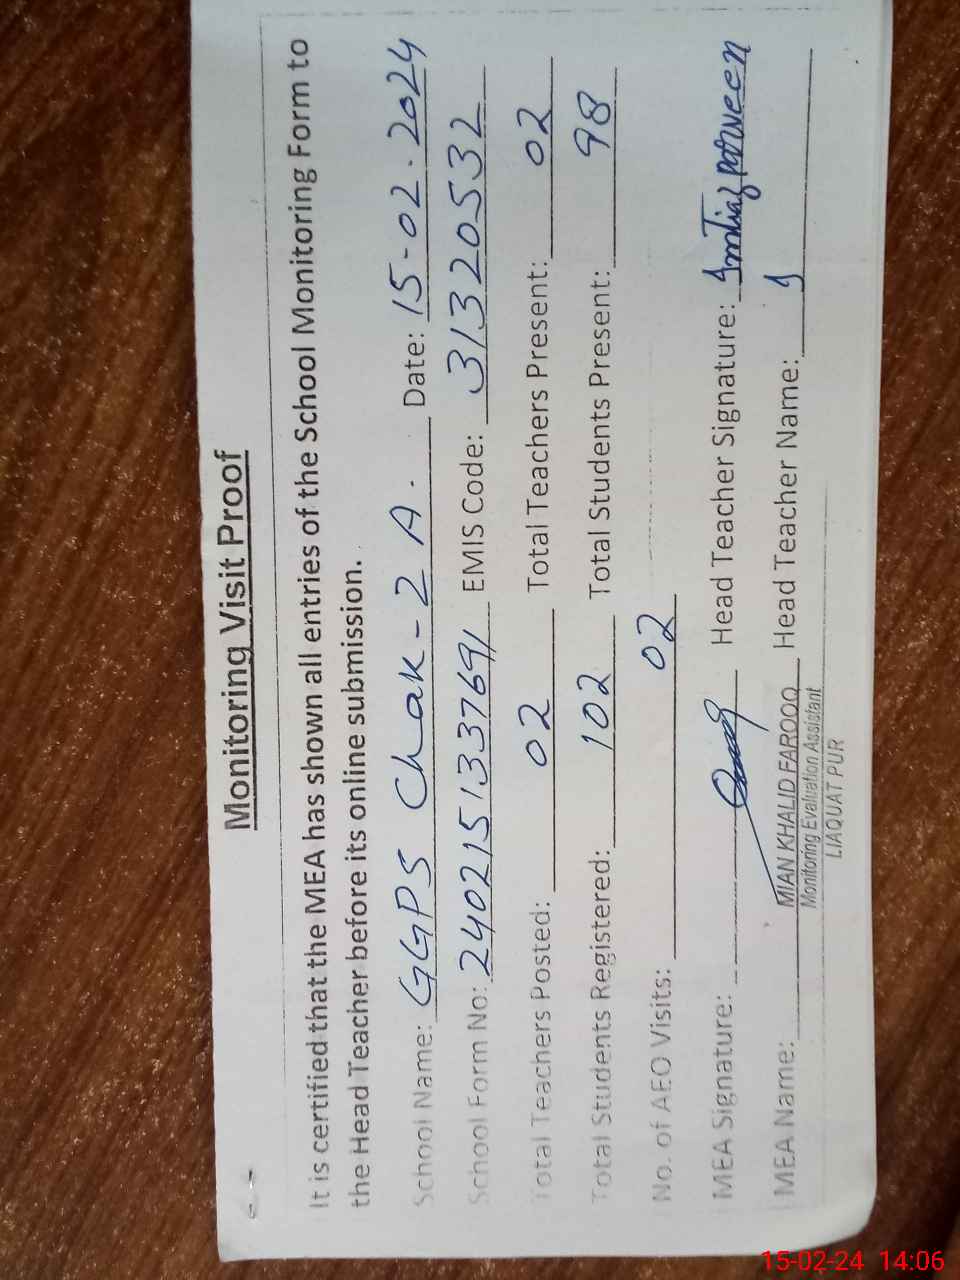 Monitoring Visit Proof
It is certified that the MEA has shown all entries of the School Monitoring Form to
the Head Teacher before its online submission.
School Name: GGPS Chak-2 A. Date: 15-02-2024
School Form No: 2402151337691 EMIS Code: 31320532
Total Teachers Posted: 02 Total Teachers Present: 02
Total Students Registered: 102 Total Students Present: 98
No. of AEO Visits: 02
MEA Signature: Head Teacher Signature: Imtiaz Parveen
MEA Name: MIAN KHALID FAROOQ Head Teacher Name:
Monitoring Evaluation Assistant
LIAQUAT PUR
15-02-24 14:06